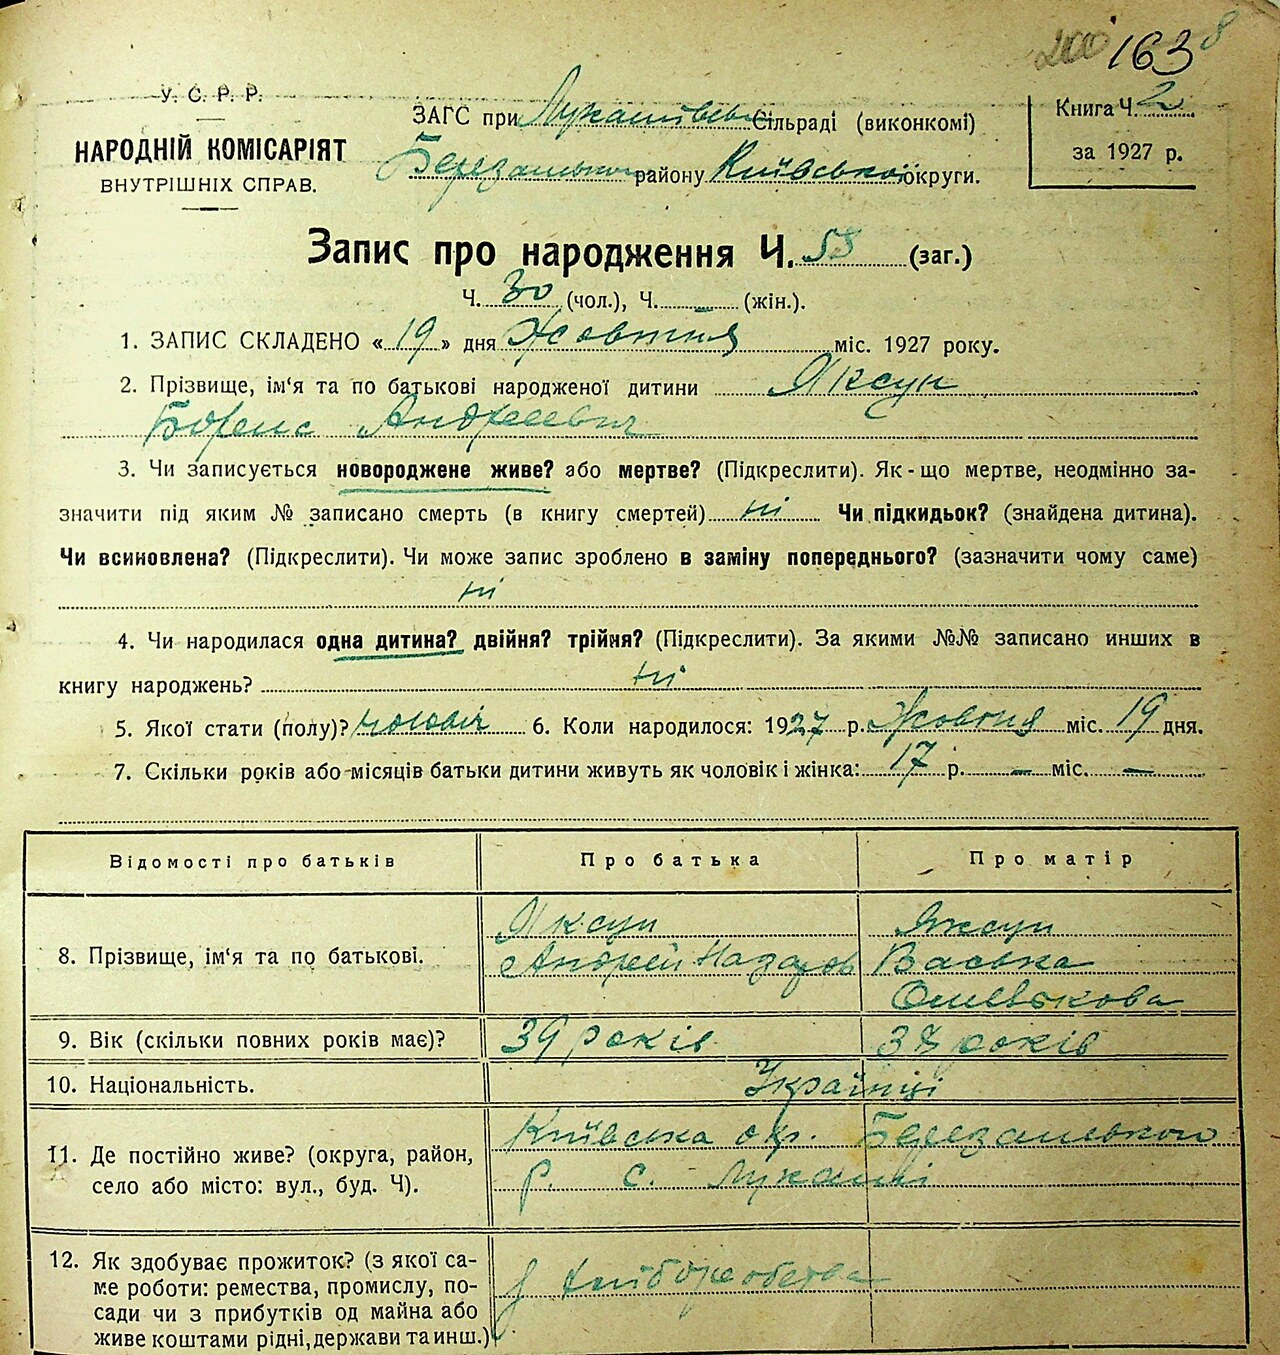 200 163 8
У. С. Р. Р.
НАРОДНІЙ КОМІСАРІЯТ
ВНУТРІШНІХ СПРАВ.
ЗАГС при Лукашівськ Сільраді (виконкомі)
Березанського району Київської округи.
Книга Ч. 2
за 1927 р.
Запис про народження Ч. 55 (заг.)
Ч. 30 (чол.), Ч. — (жін.).
1. ЗАПИС СКЛАДЕНО «19» дня Жовтня міс. 1927 року.
2. Прізвище, ім‘я та по батькові народженої дитини Яксун
Борис Андреевич
3. Чи записується новороджене живе? або мертве? (Підкреслити). Як-що мертве, неодмінно за-
значити під яким № записано смерть (в книгу смертей) ні Чи підкидьок? (знайдена дитина).
Чи всиновлена? (Підкреслити). Чи може запис зроблено в заміну попереднього? (зазначити чому саме)
ні
4. Чи народилася одна дитина? двійня? трійня? (Підкреслити). За якими №№ записано инших в
книгу народжень? ні
5. Якої стати (полу)? чоловіч 6. Коли народилося: 1927 р. Жовтня міс. 19 дня.
7. Скільки років або місяців батьки дитини живуть як чоловік і жінка: 17 р. — міс. —
Відомості про батьків Про батька Про матір
8. Прізвище, ім‘я та по батькові.
Яксун Яксун
Андрей Назаров Васька
9. Вік (скільки повних років має)? 39 років років
10. Національність. Українці
11. Де постійно живе? (округа, район,
село або місто: вул., буд. Ч).
Київська окр. Березанського
р. с. Лукаші
12. Як здобуває прожиток? (з якої са-
ме роботи: ремества, промислу, по-
сади чи з прибутків од майна або
живе коштами рідні, держави та инш.)
з хліборобства